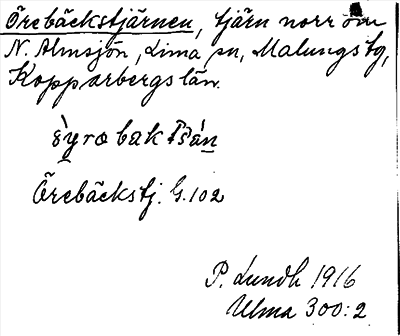 Örebäckstjärnen, tjärn norr om
N. Almsjön, Lima sn, Malungs tg,
Kopparbergs län.
Örebäckstj. G. 102
P. Lundh 1916
Ulma 300:2